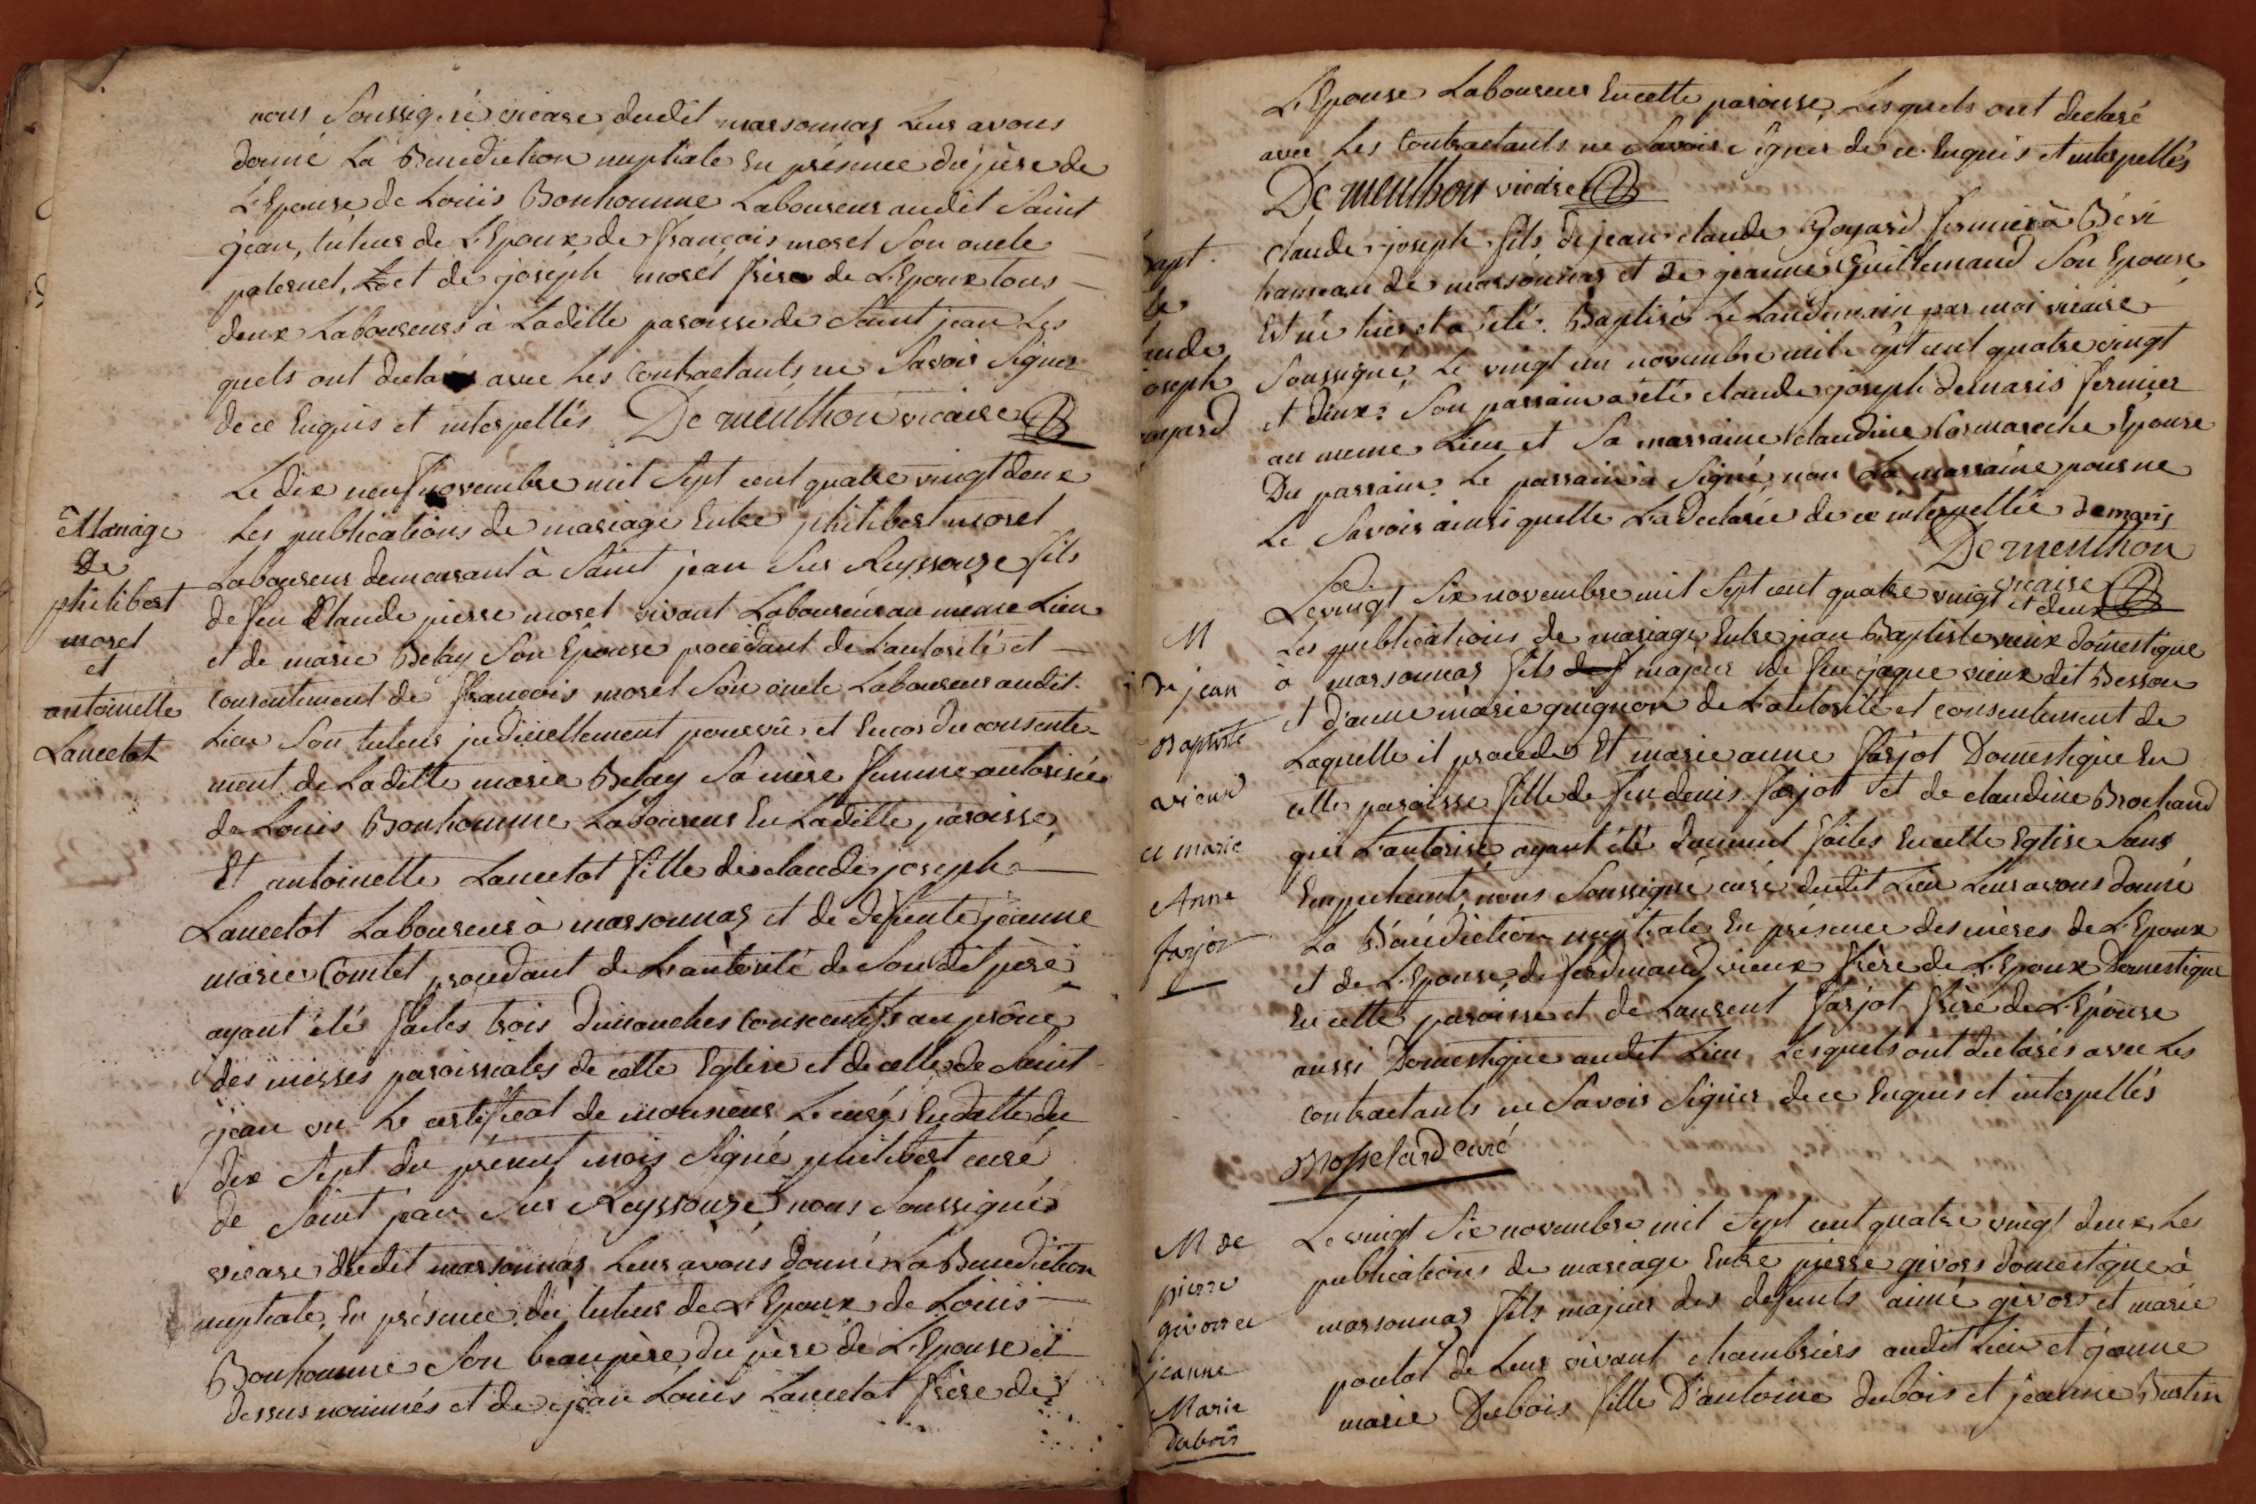 nous soussigné vicaire dudit marsonnas leur avons
donné la Benediction nuptiale en présence du père de
L'Epouse de Louis Bonhomme Laboureur audit Saint
jean, tuteur de L'Epoux de françois morel Son oncle
paternel, et de joseph morel frère de L'Epoux tous
deux Laboureurs à Laditte paroisse de Saint jean Les
quels ont declarés avec Les Contractants ne Savoir Signer
de ce Enquis et interpellés De menthon vicaire
Le dix neuf novembre mil Sept cent quatre vingt deux
Mariage
de
philibert
morel
et
antoinette
Lancelot
Les publications de mariage Entre philibert morel
Laboureur demeurant à Saint jean Sur Reyssouze fils
de feu Claude pierre morel vivant Laboureur au meme Lieu
et de marie Belay Son Epouse procédant de L'autorité et
consentement de françois morel Son oncle Laboureur audit
Lieu Son tuteur judiciellement pourvû et Encor du consente
ment de Laditte marie Belay Sa mère femme autorisée
de Louis Bonhomme Laboureur En Laditte paroisse,
Et antoinette Lancelot fille de claude joseph
Lancelot Laboureur à marsonnas et de defunte jeanne
marie Comtet procedant de L'autorité de Son dit père
ayant été faites trois dimanches consecutifs au prône
des messes paroissiales de cette Eglise et de celle de Saint
jean vu Le certificat de monsieur Le curé En datte du
dix Sept du présent mois Signé philibert curé
de Saint jean Sur Reyssouze nous Soussigné
vicaire dudit marsonnas Leur avons donné La Benediction
nuptiale, En présence du tuteur de L'Epoux de Louis
Bonhomme Son beaupère du père de L'Epouse et
dessus nommés et de jean Louis Lancelot frère de
L'Epouse Laboureur En cette paroisse, Lesquels ont declaré
avec Les Contractants ne Savoir Signer de ce Enquis et interpellés
De menthon vicaire
Bapt.
de
claude
joseph
goyard
Claude joseph fils de jean claude Goyard fermier à Bévi
hameau de marsonnas et de jeanne Guillemaud Son Epouse
Est né hier et a été Baptisé Le Landemain par moi vicaire
Soussigné, Le vingt un novembre mil Sept cent quatre vingt
et deux. Son parrain a été claude joseph demaris fermier
au meme Lieu et Sa marraine claudine Cormareche Epouse
Du parrain. Le parrain à Signé, non La marraine pour ne
Le Savoir ainsi quelle L'a declarée de ce interpellée demaris
De menthon
vicaire
Le vingt Six novembre mil Sept cent quatre vingt et deux
M
de jean
Baptiste
vieux
et marie
Anne
farjot
Les publications de mariage, Entre jean Baptiste vieux domestique
à marsonnas fils majeur de feu jaque vieux dit Besson
et d'anne marie guignon de L'autorité et consentement de
Laquelle il procede Et marie anne farjot Domestique En
cette paroisse fille de feu denis farjot et de claudine Brochand
qui L'autorise ayant été duement faites En cette Eglise Sans
Empechement, nous Soussigné curé dudit Lieu Leur avons donné
La Bénédiction nuptiale En présence des mères de L'Epoux
et de L'Epouse, de ferdinand vieux frère de L'Epoux Domestique
En cette paroisse et de Laurent farjot frère de L'Epouse
aussi Domestique audit Lieu Lesquels ont declarés avec Les
contractants ne Savoir Signer de ce Enquis et interpellés
Mosselard curé
M de
pierre
givors et
jeanne
Marie
dubois
Le vingt Six novembre mil Sept cent quatre vingt deux Les
publications de mariage Entre pierre givors domestique à
marsonnas fils majeur des defunts aimé givors et marie
poulot de Leur vivant chambriers audit Lieu et jeanne
marie Dubois fille D'antoine dubois et jeanne Burtin